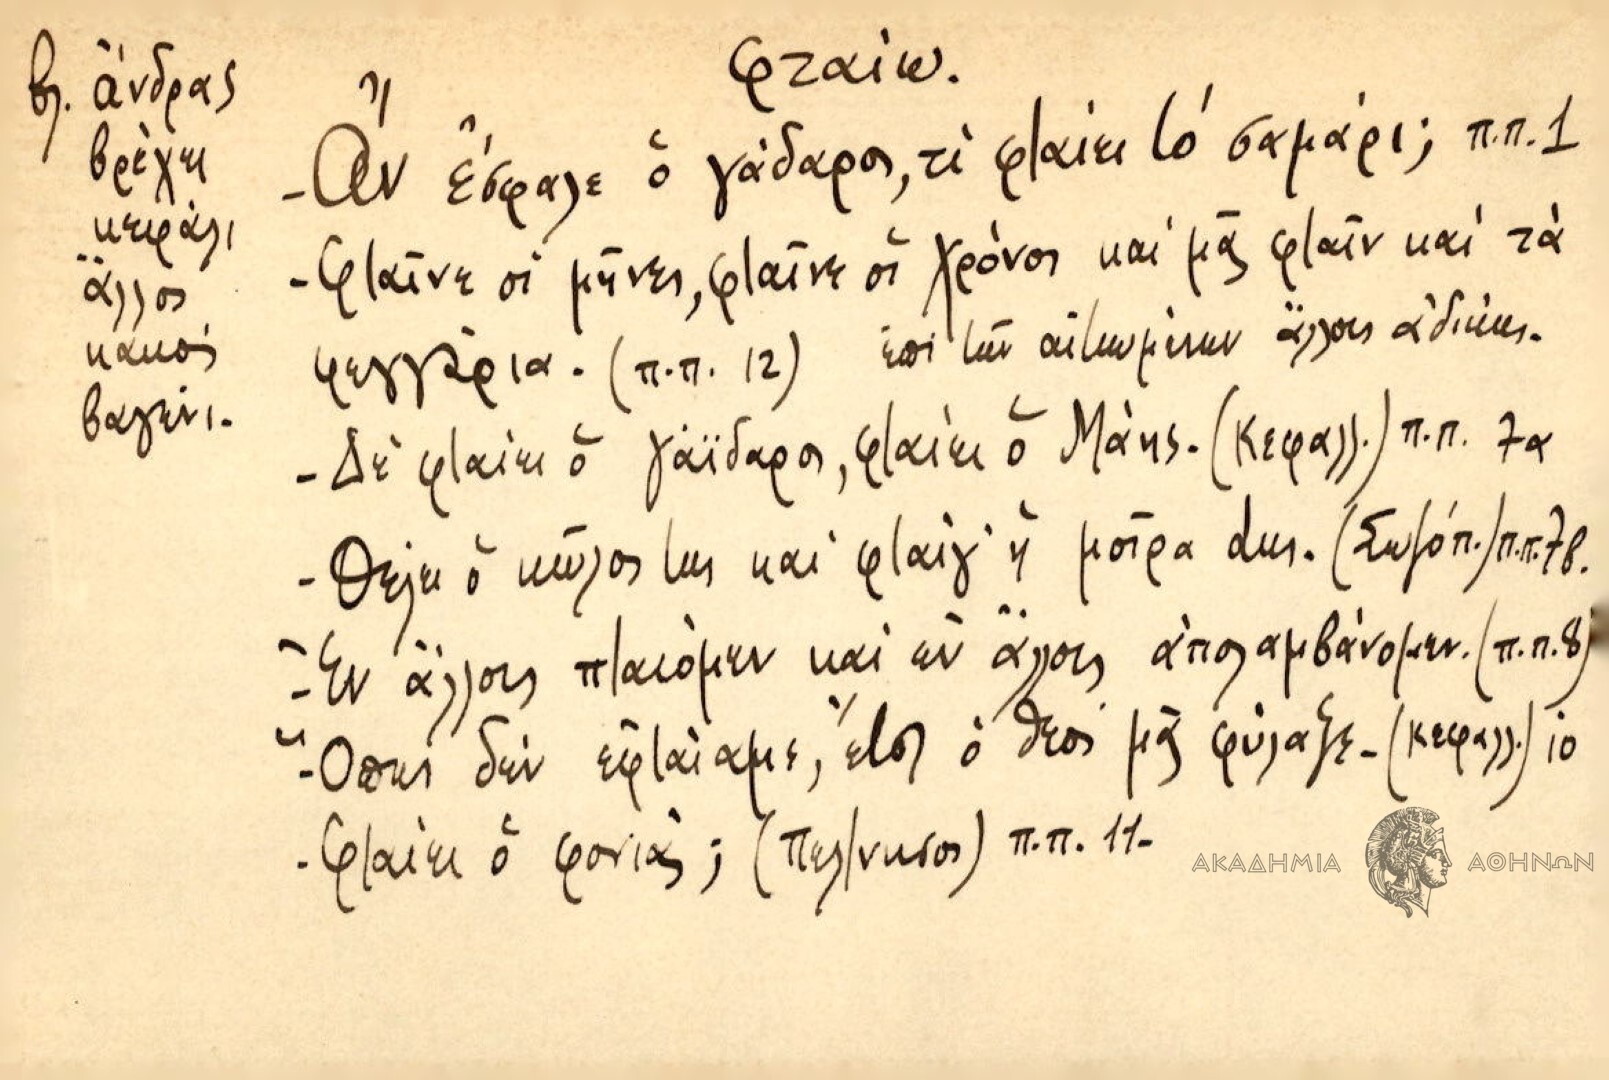 φταίω.
βλ. ἄνδρας
βρέχει
κεφάλι
ἄλλος
κακός
βαγένι.
-Ἂν ἔσφαλε ὁ γάδαρος, τί φταίει τό σαμάρι; π.π. 1
-Φταῖνε οἱ μῆνες, φταῖνε οἱ χρόνοι καί μᾶς φταῖν καί τά
φεγγάρια. (π.π. 12) ἐπί τῶν αἰτιωμένων ἄλλους ἀδίκως.
-Δέ φταίει ὁ γάϊδαρος, φταίει ὁ Μάης. (Κεφαλλ.) π.π. 7α
-Θέλει ὁ κῶλος της καί φταίγ' ἡ μοῖρα της. (Σωζόπ.) π.π. 7β.
-Ἐν ἄλλοις πταίομεν καί ἐν ἄλλοις ἀπολαμβάνομεν. (π.π. 8)
-Ὅπως δέν ἐφταίαμε, ἔτσι ὁ θεός μᾶς φύλαξε- (Κεφαλλ.) 10
-Φταίει ὁ φονιάς; (Πελ/νησος) π.π. 11-
ΑΚΑΔΗΜΙΑ ΑΘΗΝΩΝ